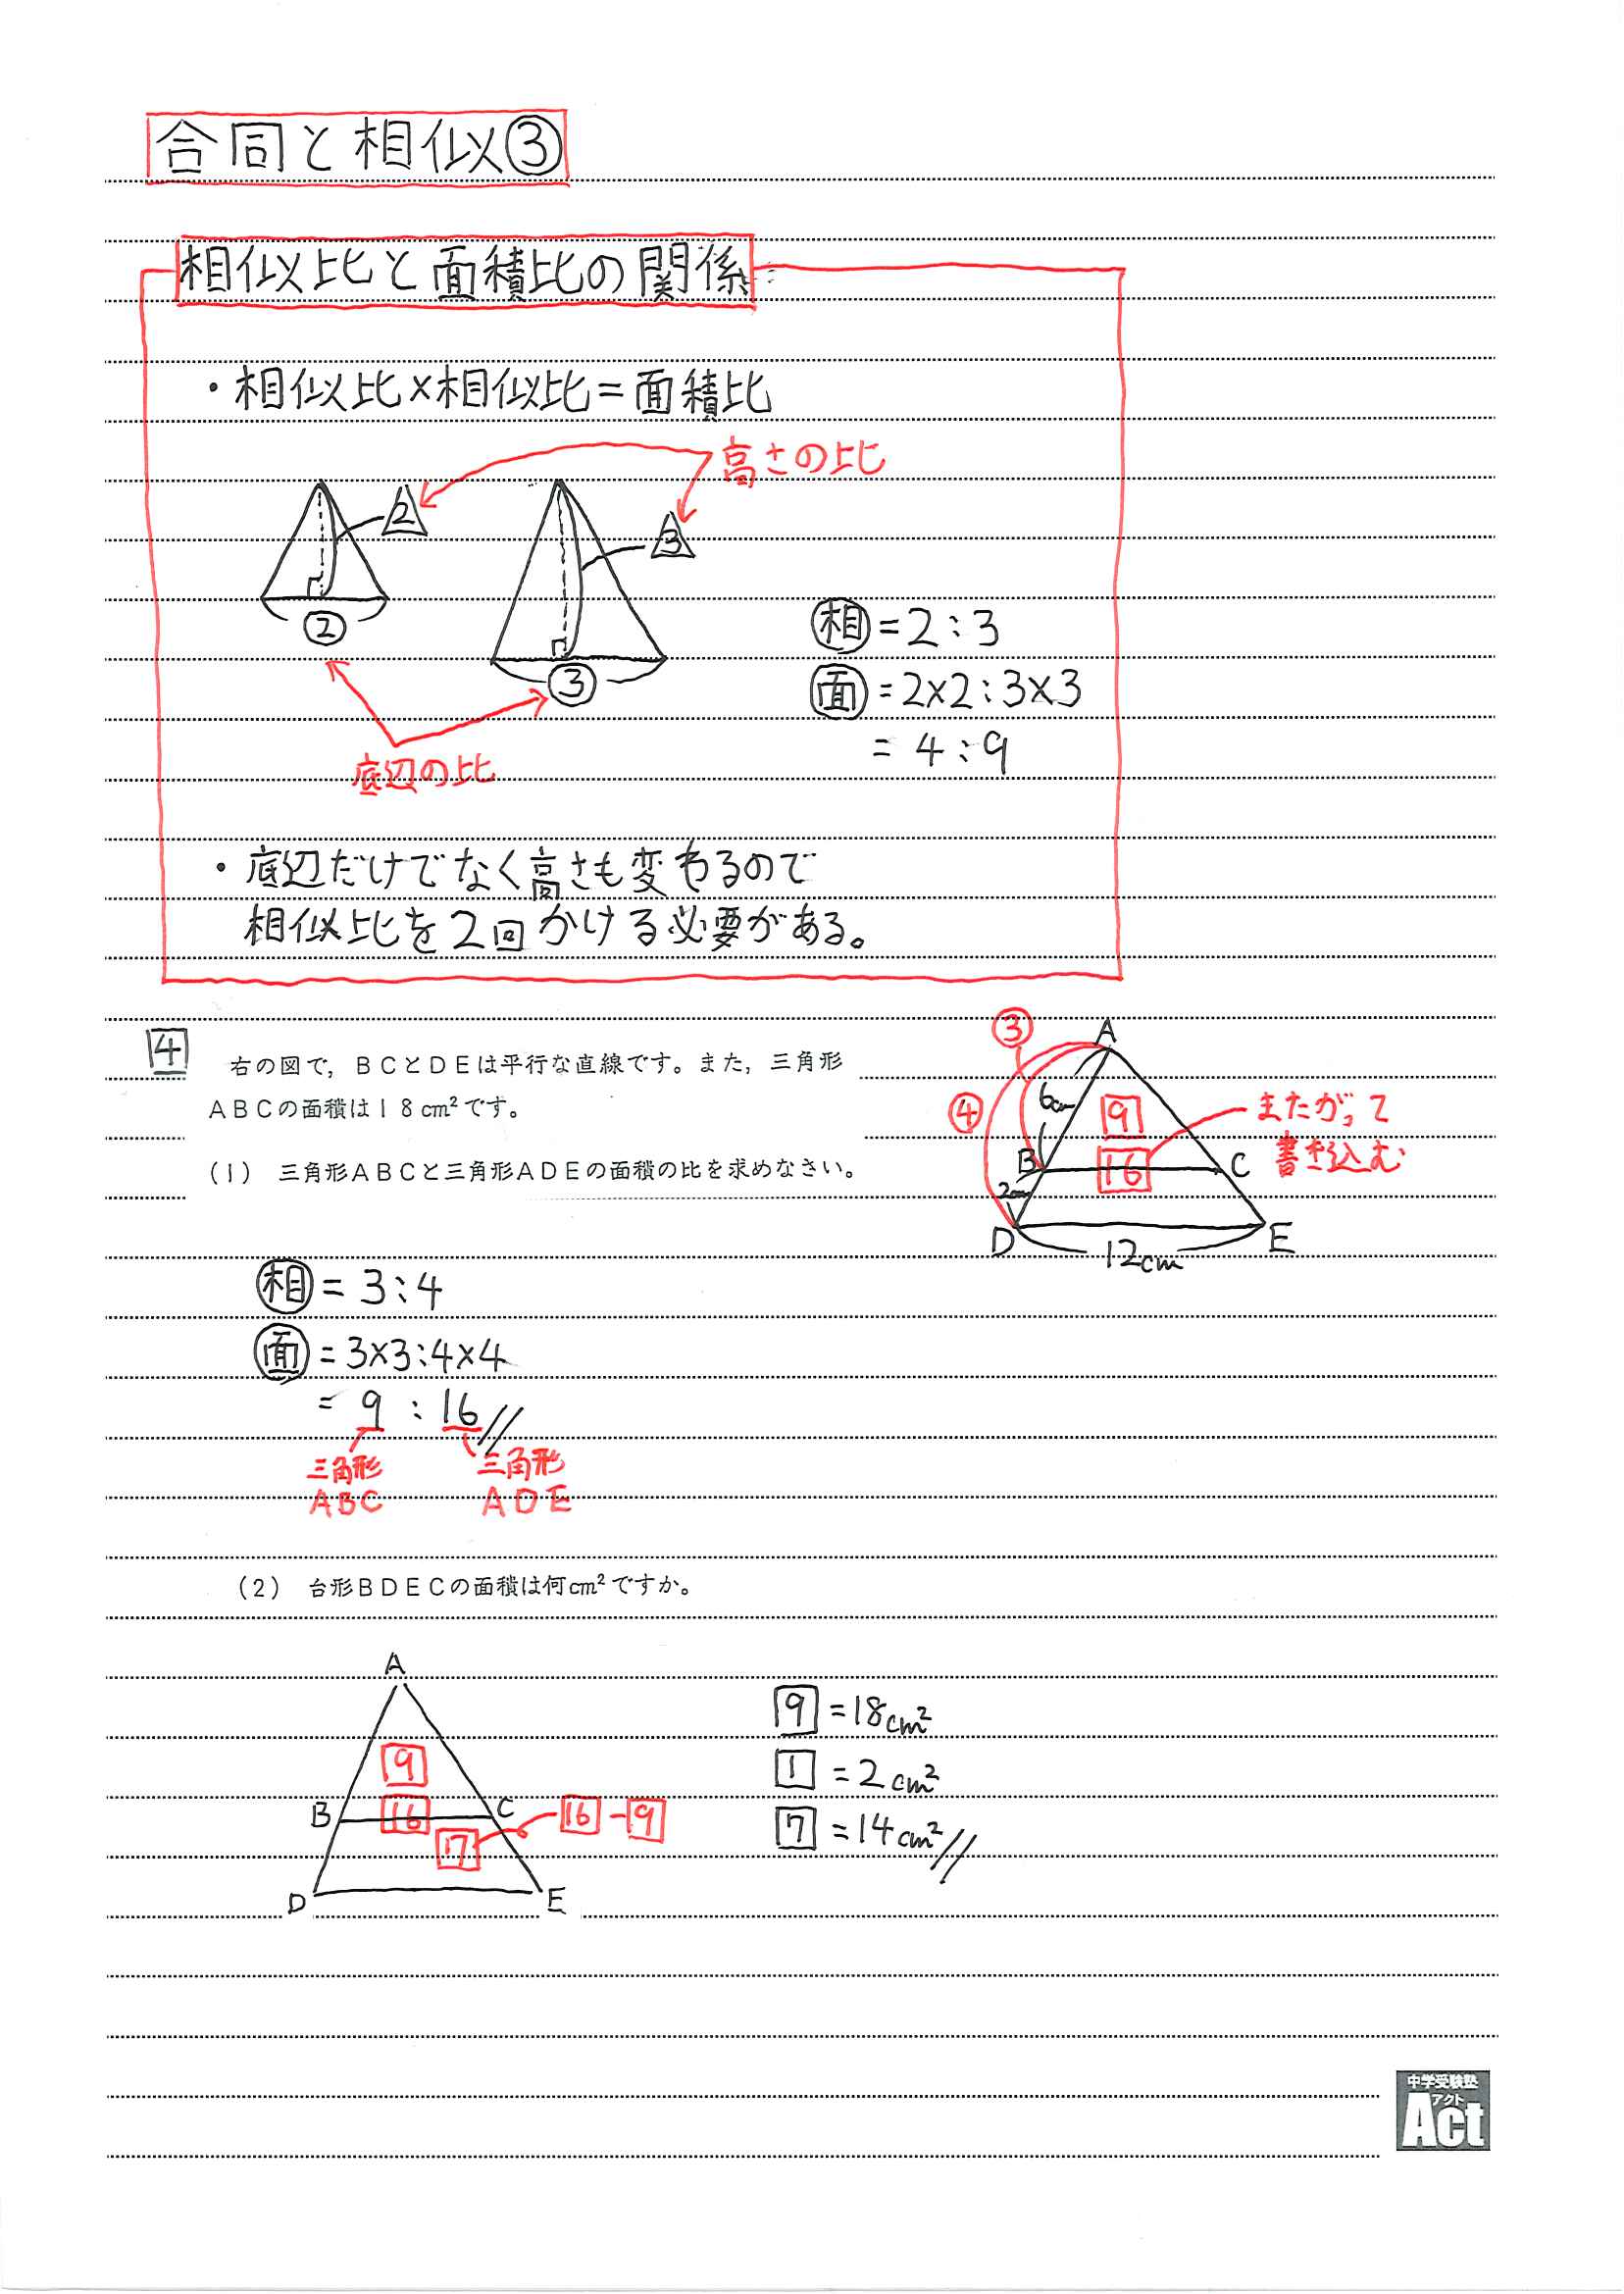 合同と相似③
相似比と面積比の関係
・相似比×相似比=面積比
高さの比
2
3
②
③
底辺の比
相=2:3
面=2×2:3×3
=4:9
・底辺だけでなく高さも変わるので
相似比を2回かける必要がある。
4
右の図で，ＢＣとＤＥは平行な直線です。また，三角形
ＡＢＣの面積は１８cm²です。
（１） 三角形ＡＢＣと三角形ＡＤＥの面積の比を求めなさい。
③
A
④
6cm
9
またがって
書き込む
B
16
C
2cm
D
12cm
E
相=3:4
面=3×3:4×4
=9:16
三角形
ABC
三角形
ADE
（２） 台形ＢＤＥＣの面積は何cm²ですか。
A
9
B
16
C
7
16-9
D
E
9=18cm²
1=2cm²
7=14cm²
中学受験塾
アクト
Act